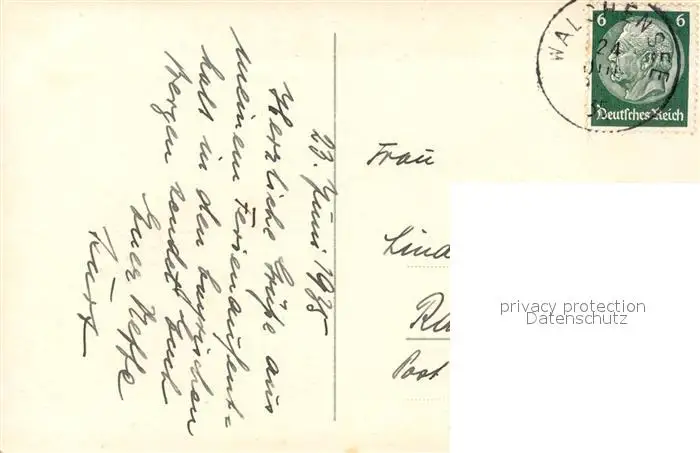 23. Juni 1935
Herzliche Grüße aus
meinem Ferienaufent-
halt in den bayrischen
Bergen sendet Euch
Euer Neffe
Kurt
WALCHENSEE
24
6 6
Deutsches Reich
Frau
Lind
Post
privacy protection
Datenschutz